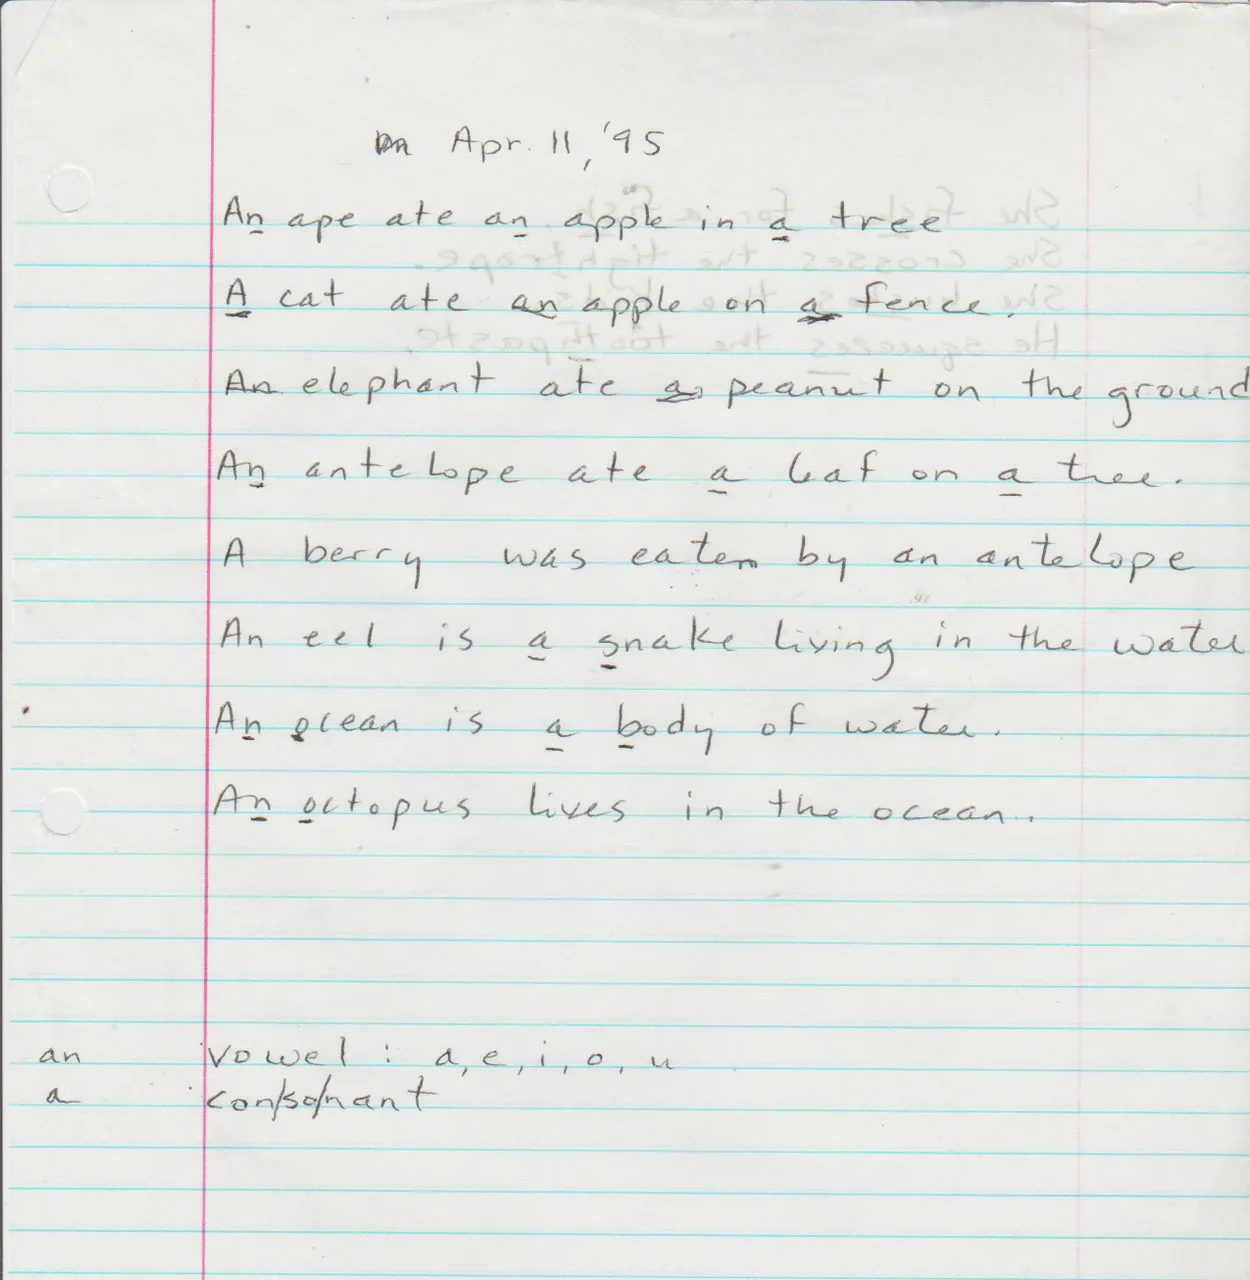 Apr. 11, '95
An ape ate an apple in a tree
A cat ate an apple on a fence.
An elephant ate a peanut on the ground
An antelope ate a leaf on a tree.
A berry was eaten by an antelope
An eel is a snake living in the water
An ocean is a body of water.
An octopus lives in the ocean.
an vowel: a, e, i, o, u
a con/so/nant